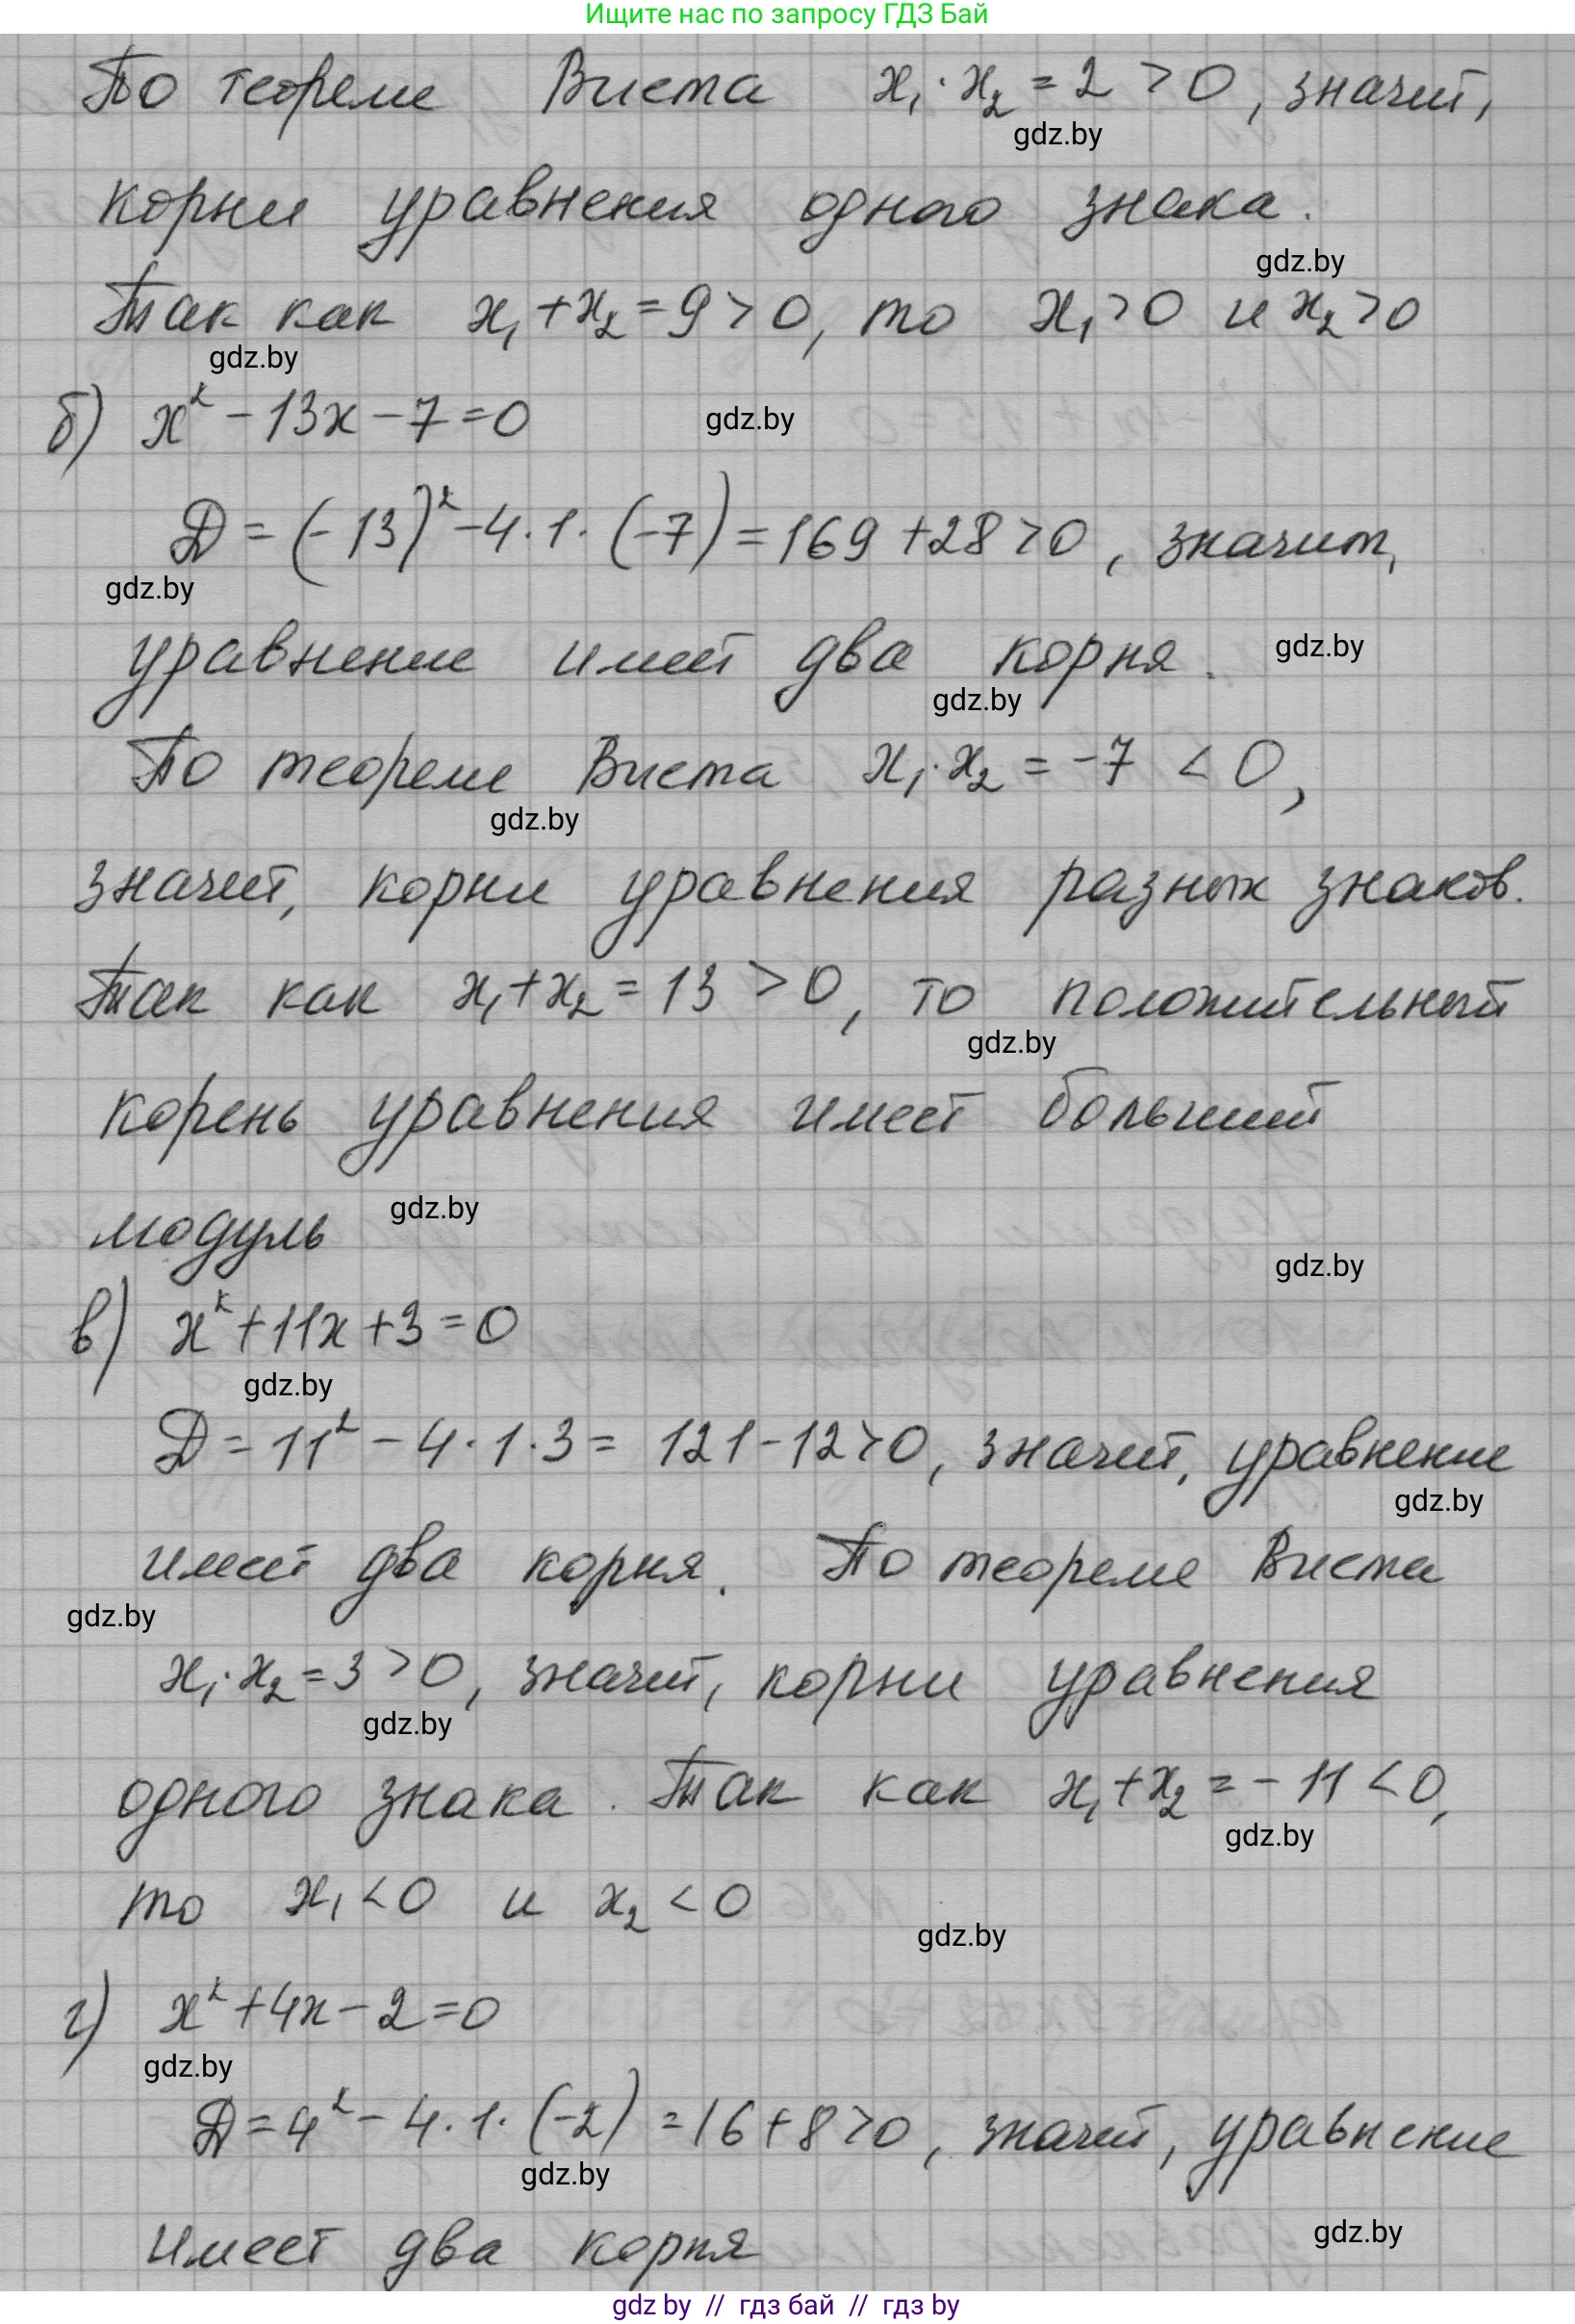 Ищите нас по запросу ГДЗ Бай
По теореме Виета x₁·x₂ = 2 > 0, значит,
gdz.by
корни уравнения одного знака.
gdz.by
Так как x₁+x₂ = 9 > 0, то x₁>0 и x₂>0
gdz.by
б) x² - 13x - 7 = 0
gdz.by
D = (-13)² - 4·1·(-7) = 169 + 28 > 0, значит,
gdz.by
уравнение имеет два корня.
gdz.by
gdz.by
По теореме Виета x₁·x₂ = -7 < 0,
gdz.by
значит, корни уравнения разных знаков.
Так как x₁+x₂ = 13 > 0, то положительный
gdz.by
корень уравнения имеет больший
модуль
gdz.by
gdz.by
в) x² + 11x + 3 = 0
gdz.by
D = 11² - 4·1·3 = 121 - 12 > 0, значит, уравнение
gdz.by
имеет два корня. По теореме Виета
gdz.by
x₁·x₂ = 3 > 0, значит, корни уравнения
gdz.by
одного знака. Так как x₁+x₂ = -11 < 0,
gdz.by
то x₁ < 0 и x₂ < 0
gdz.by
г) x² + 4x - 2 = 0
gdz.by
D = 4² - 4·1·(-2) = 16 + 8 > 0, значит, уравнение
gdz.by
имеет два корня
gdz.by
gdz by // гдз бай // гдз by